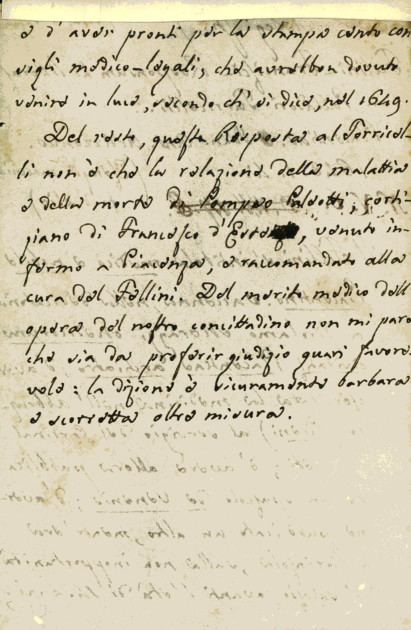 e d' aver pronti per la stampa cento con
sigli medico-legali, che avrebbon dovuto
venire in luce, secondo ch' ei dice, nel 1649.
Del resto, questa Risposta al Torricel-
li non è che la relazione della malattia
e della morte di Pompeo Paleotti, corti-
giano di Francesco d'Este, venuto in-
fermo a Piacenza, e raccomandato alla
cura del Fellini. Del merito medico dell'
opera del nostro concittadino non mi pare
che sia da proferir giudizio guari favore-
vole: la dizione è sicuramente barbara
e scorretta oltre misura.